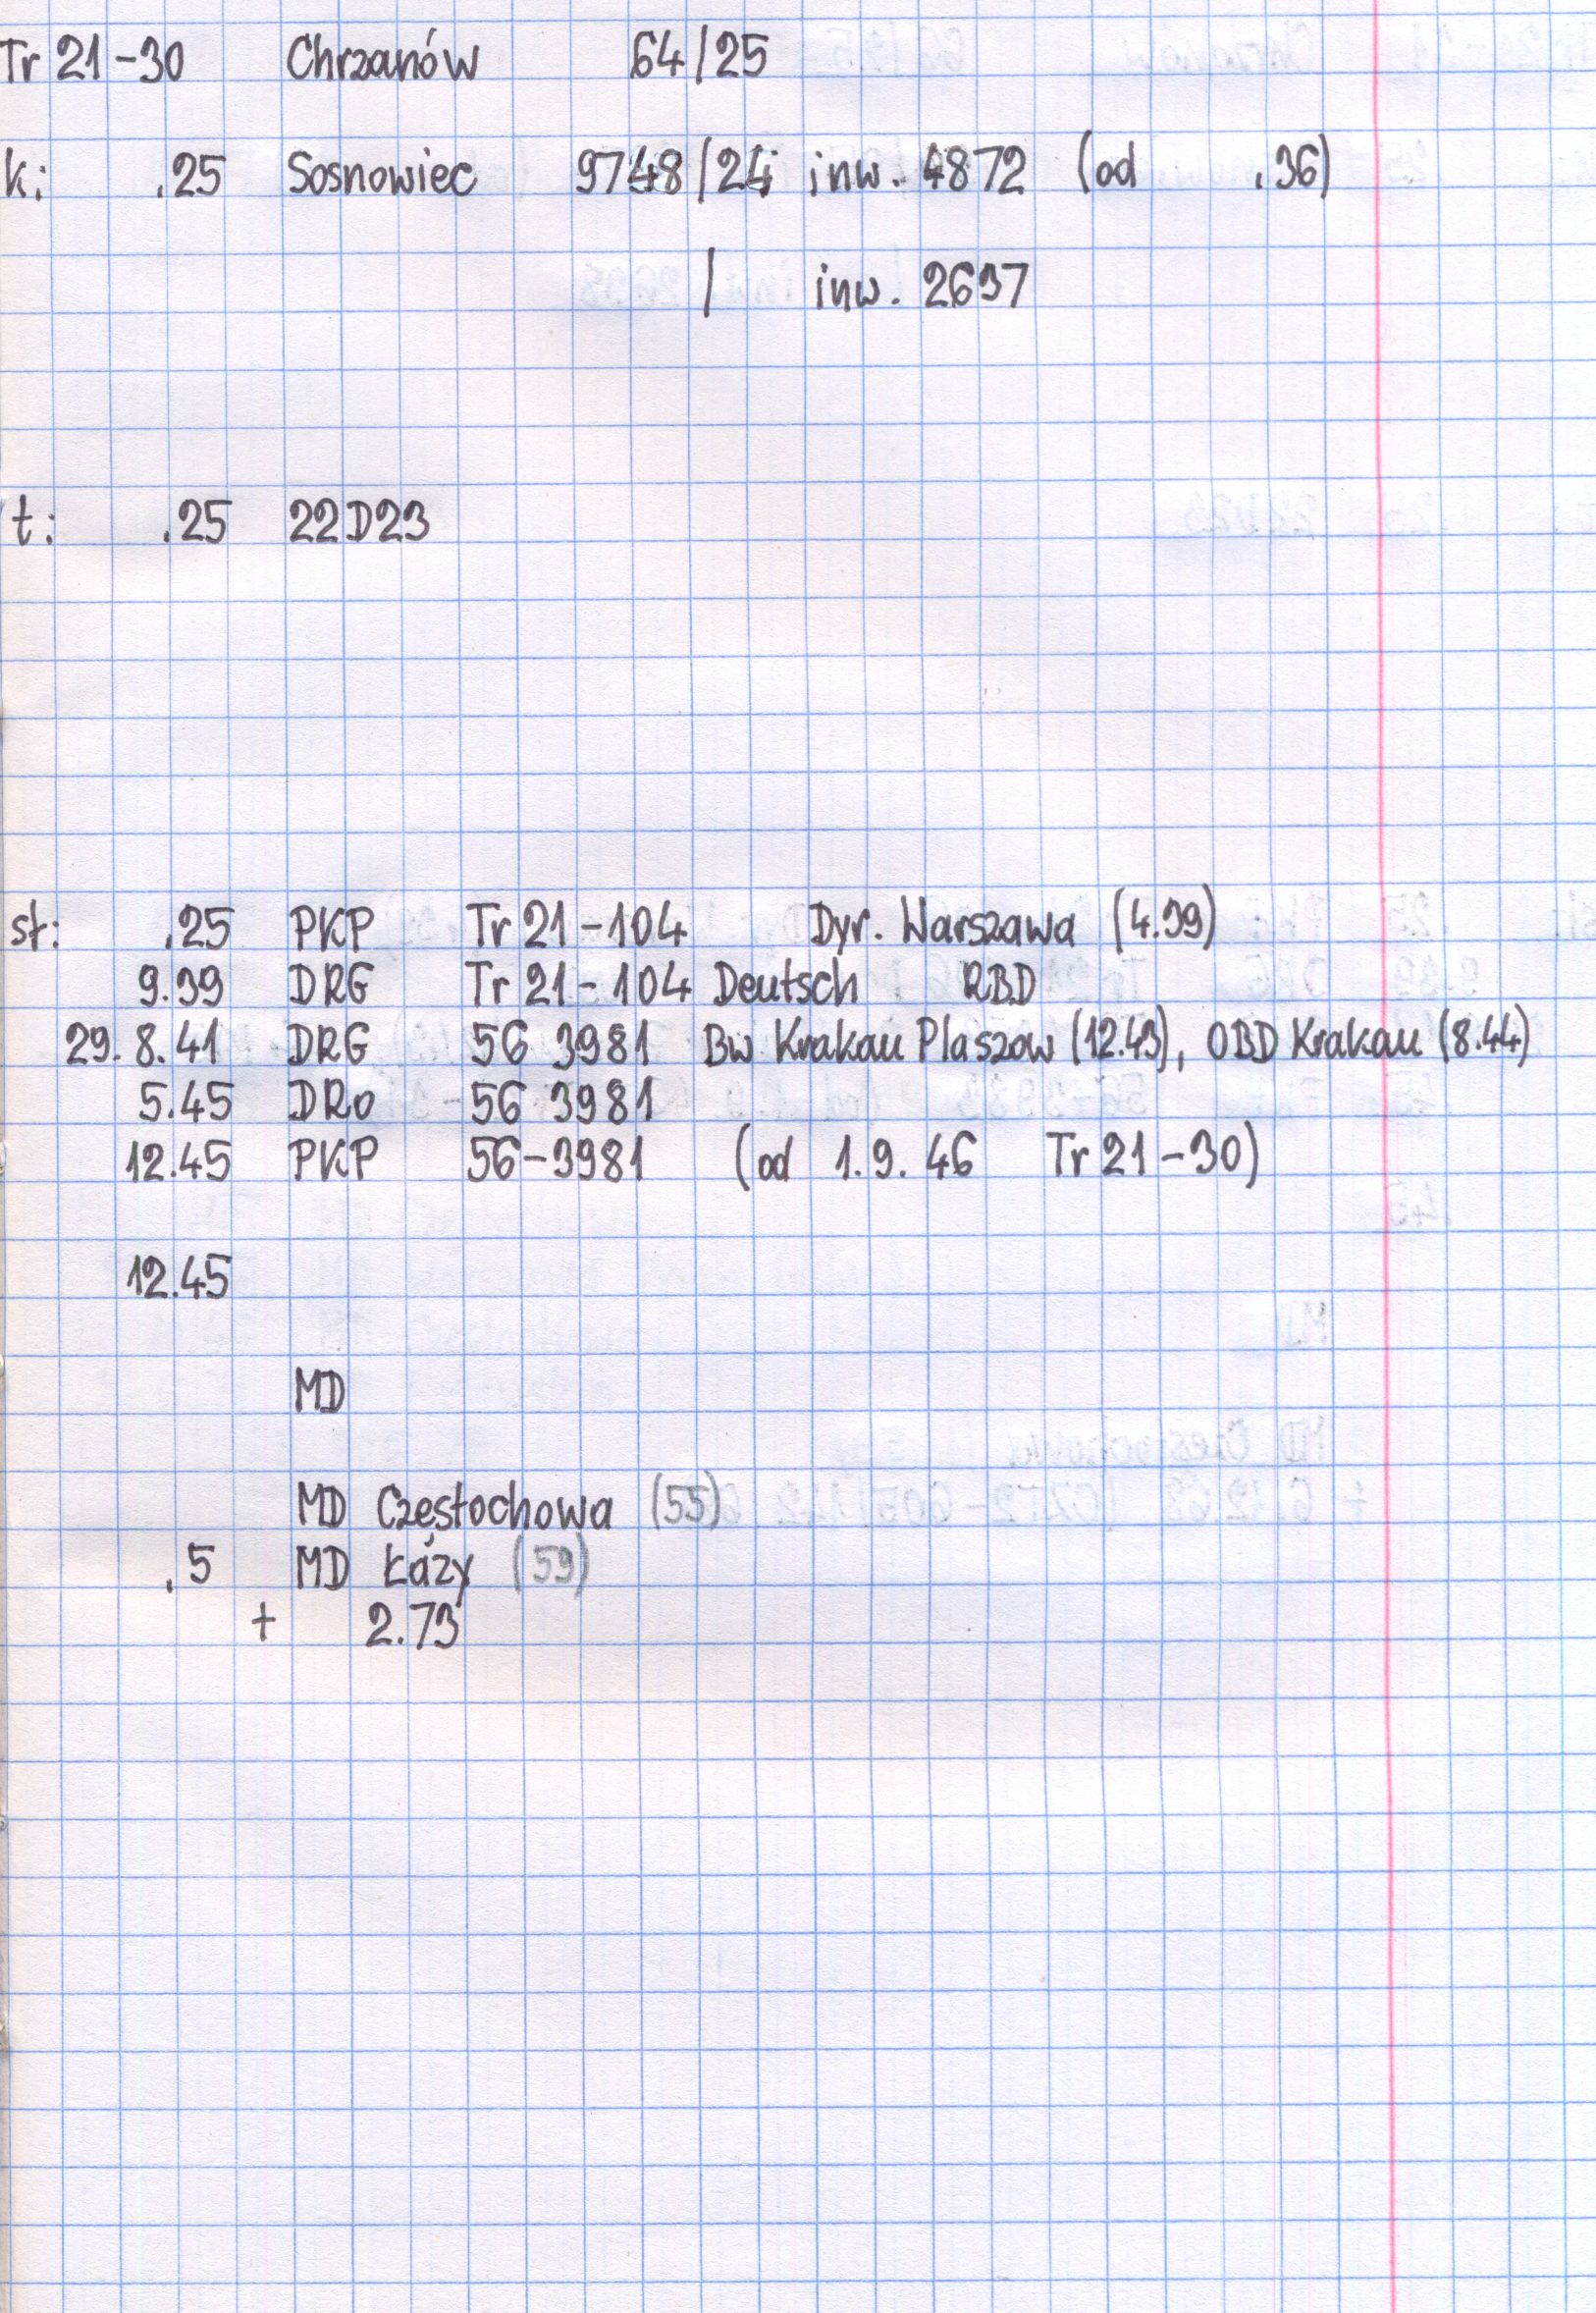 Tr 21-30 Chrzanów 64/25
k: .25 Sosnowiec 9748/24 inw. 4872 (od .36)
/ inw. 2697
t: .25 22D23
sł: .25 PKP Tr 21-104 Dyr. Warszawa (4.39)
9.39 DRG Tr 21-104 Deutsch RBD
29.8.41 DRG 56 3981 Bw Krakau Plaszow (12.43), OBD Krakau (8.44)
5.45 DRo 56 3981
12.45 PKP 56-3981 (od 1.9.46 Tr 21-30)
12.45
MD
MD Częstochowa (55)
.5 MD Łazy (59)
+ 2.73